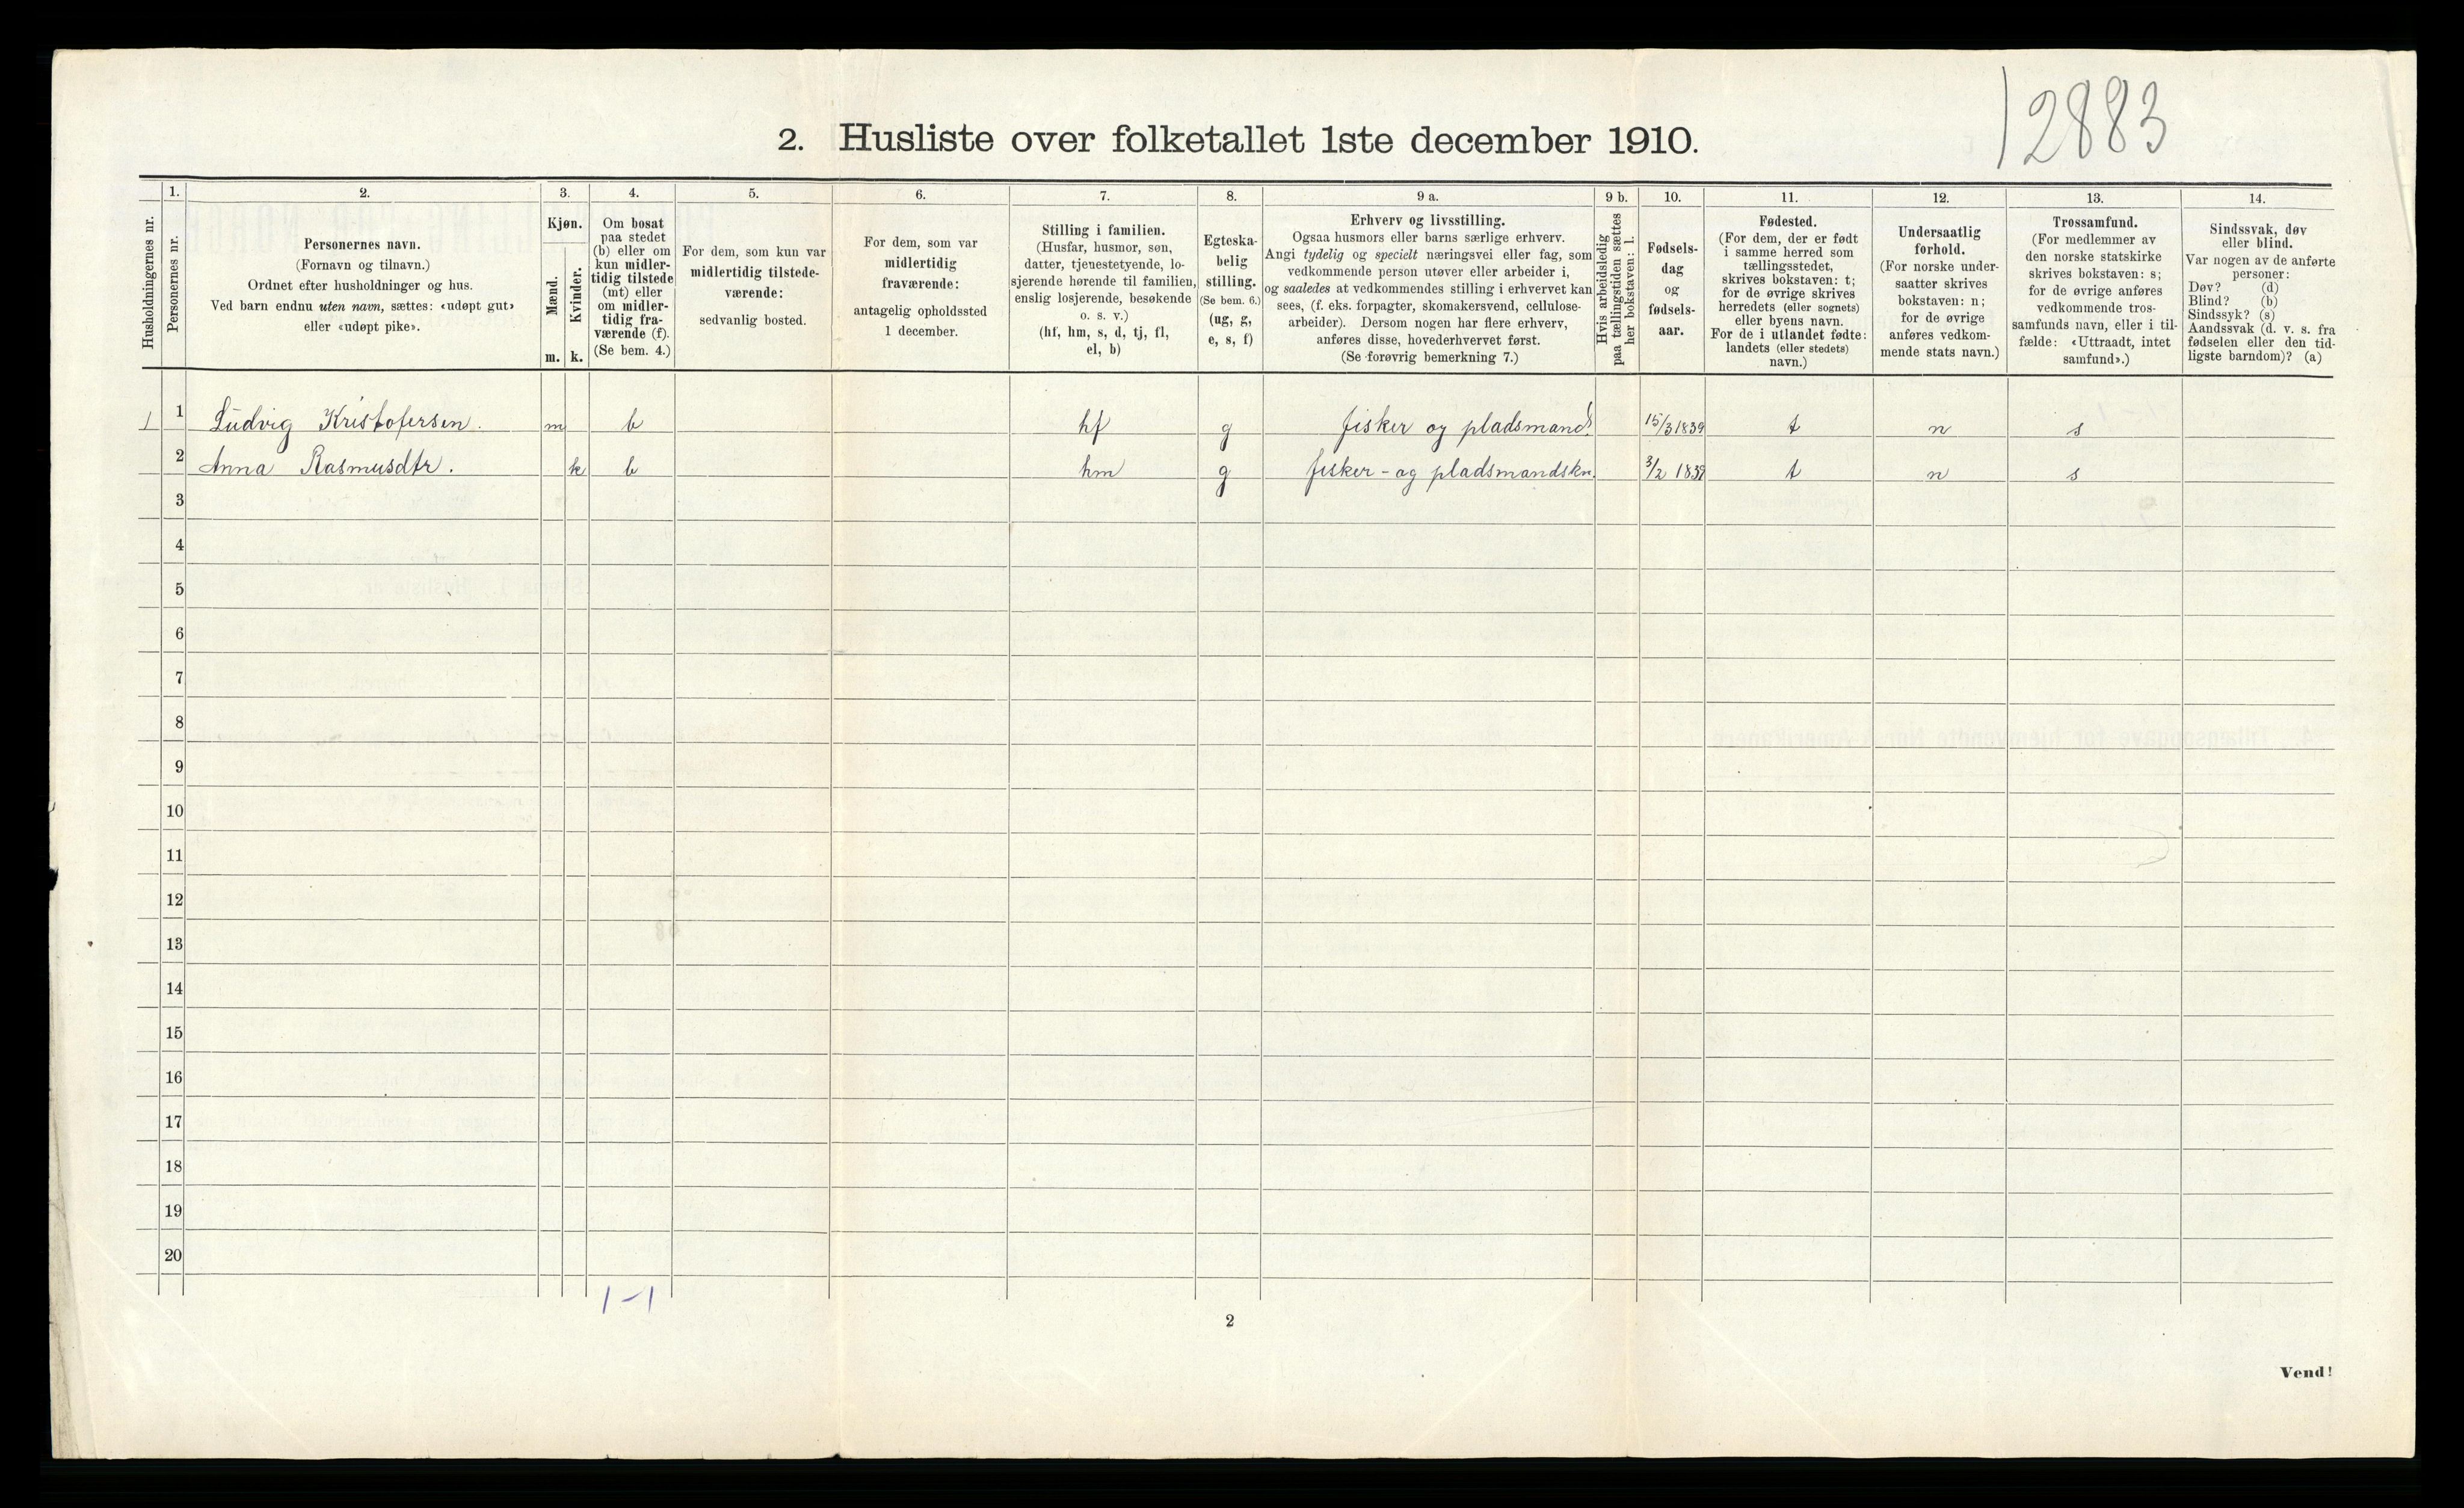 12883
2. Husliste over folketallet 1ste december 1910.
Husholdningernes nr.
1.
Personernes nr.
2.
Personernes navn.
(Fornavn og tilnavn.)
Ordnet efter husholdninger og hus.
Ved barn endnu uten navn, sættes: «udøpt gut»
eller «udøpt pike».
3.
Kjøn.
Mænd.
m.
Kvinder.
k.
4.
Om bosat
paa stedet
(b) eller om
kun midler-
tidig tilstede
(mt) eller
om midler-
tidig fra-
værende (f).
(Se bem. 4.)
5.
For dem, som kun var
midlertidig tilstede-
værende:
sedvanlig bosted.
6.
For dem, som var
midlertidig
fraværende:
antagelig opholdssted
1 december.
7.
Stilling i familien.
(Husfar, husmor, søn,
datter, tjenestetyende, lo-
sjerende hørende til familien,
enslig losjerende, besøkende
o. s. v.)
(hf, hm, s, d, tj, fl,
el, b)
8.
Egteska-
belig
stilling.
(Se bem. 6.)
(ug, g,
e, s, f)
9 a.
Erhverv og livsstilling.
Ogsaa husmors eller barns særlige erhverv.
Angi tydelig og specielt næringsvei eller fag, som
vedkommende person utøver eller arbeider i,
og saaledes at vedkommendes stilling i erhvervet kan
sees, (f. eks. forpagter, skomakersvend, cellulose-
arbeider). Dersom nogen har flere erhverv,
anføres disse, hovederhvervet først.
(Se forøvrig bemerkning 7.)
9 b.
Hvis arbeidsledig
paa tællingstiden sættes
her bokstaven: l.
10.
Fødsels-
dag
og
fødsels-
aar.
11.
Fødested.
(For dem, der er født
i samme herred som
tællingsstedet,
skrives bokstaven: t;
for de øvrige skrives
herredets (eller sognets)
eller byens navn.
For de i utlandet fødte:
landets (eller stedets)
navn.)
12.
Undersaatlig
forhold.
(For norske under-
saatter skrives
bokstaven: n;
for de øvrige
anføres vedkom-
mende stats navn.)
13.
Trossamfund.
(For medlemmer av
den norske statskirke
skrives bokstaven: s;
for de øvrige anføres
vedkommende tros-
samfunds navn, eller i til-
fælde: «Uttraadt, intet
samfund».)
14.
Sindssvak, døv
eller blind.
Var nogen av de anførte
personer:
Døv? (d)
Blind? (b)
Sindssyk? (s)
Aandssvak (d. v. s. fra
fødselen eller den tid-
ligste barndom)? (a)
1 1 Ludvig Kristofersen. m b hf g fisker og pladsmand 15/3 1839 t n s
2 Anna Rasmusdtr. k b hm g fisker- og pladsmandskn. 3/2 1839 t n s
3
4
5
6
7
8
9
10
11
12
13
14
15
16
17
18
19
20
1-1
2
Vend!